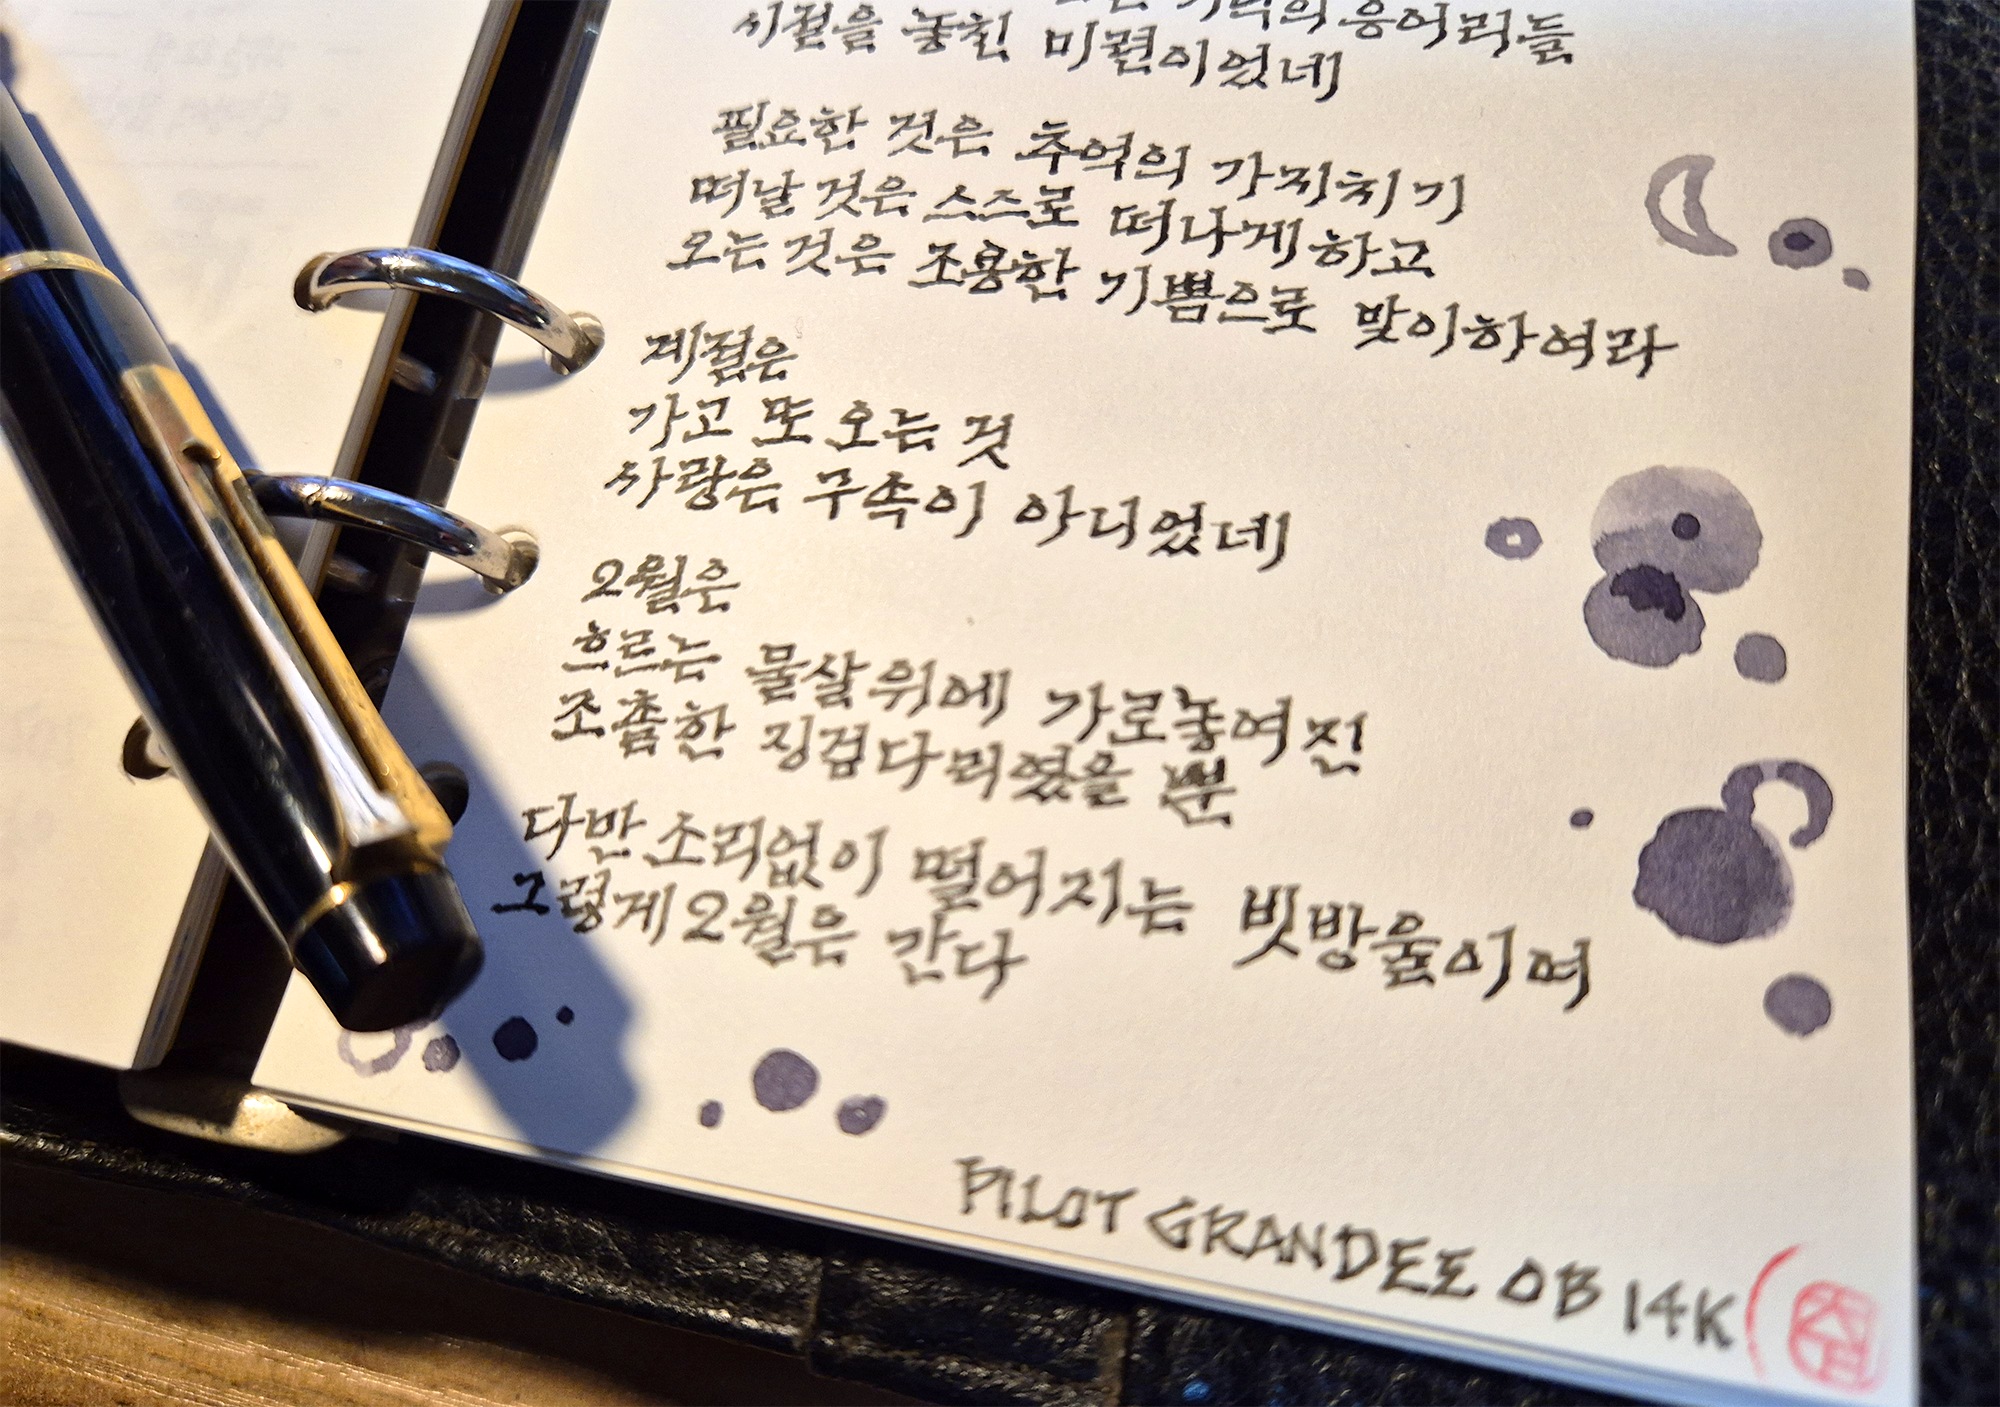 기억의 응어리들
시절을 놓친 미련이었네
필요한 것은 추억의 가지치기
떠날 것은 스스로 떠나게 하고
오는 것은 조용한 기쁨으로 맞이하여라
계절은
가고 또 오는 것
사랑은 구속이 아니었네
2월은
흐르는 물살위에 가로놓여진
조촘한 징검다리였을 뿐
다만 소리없이 떨어지는 빗방울이여
그렇게 2월은 간다
PILOT GRANDEE OB 14K